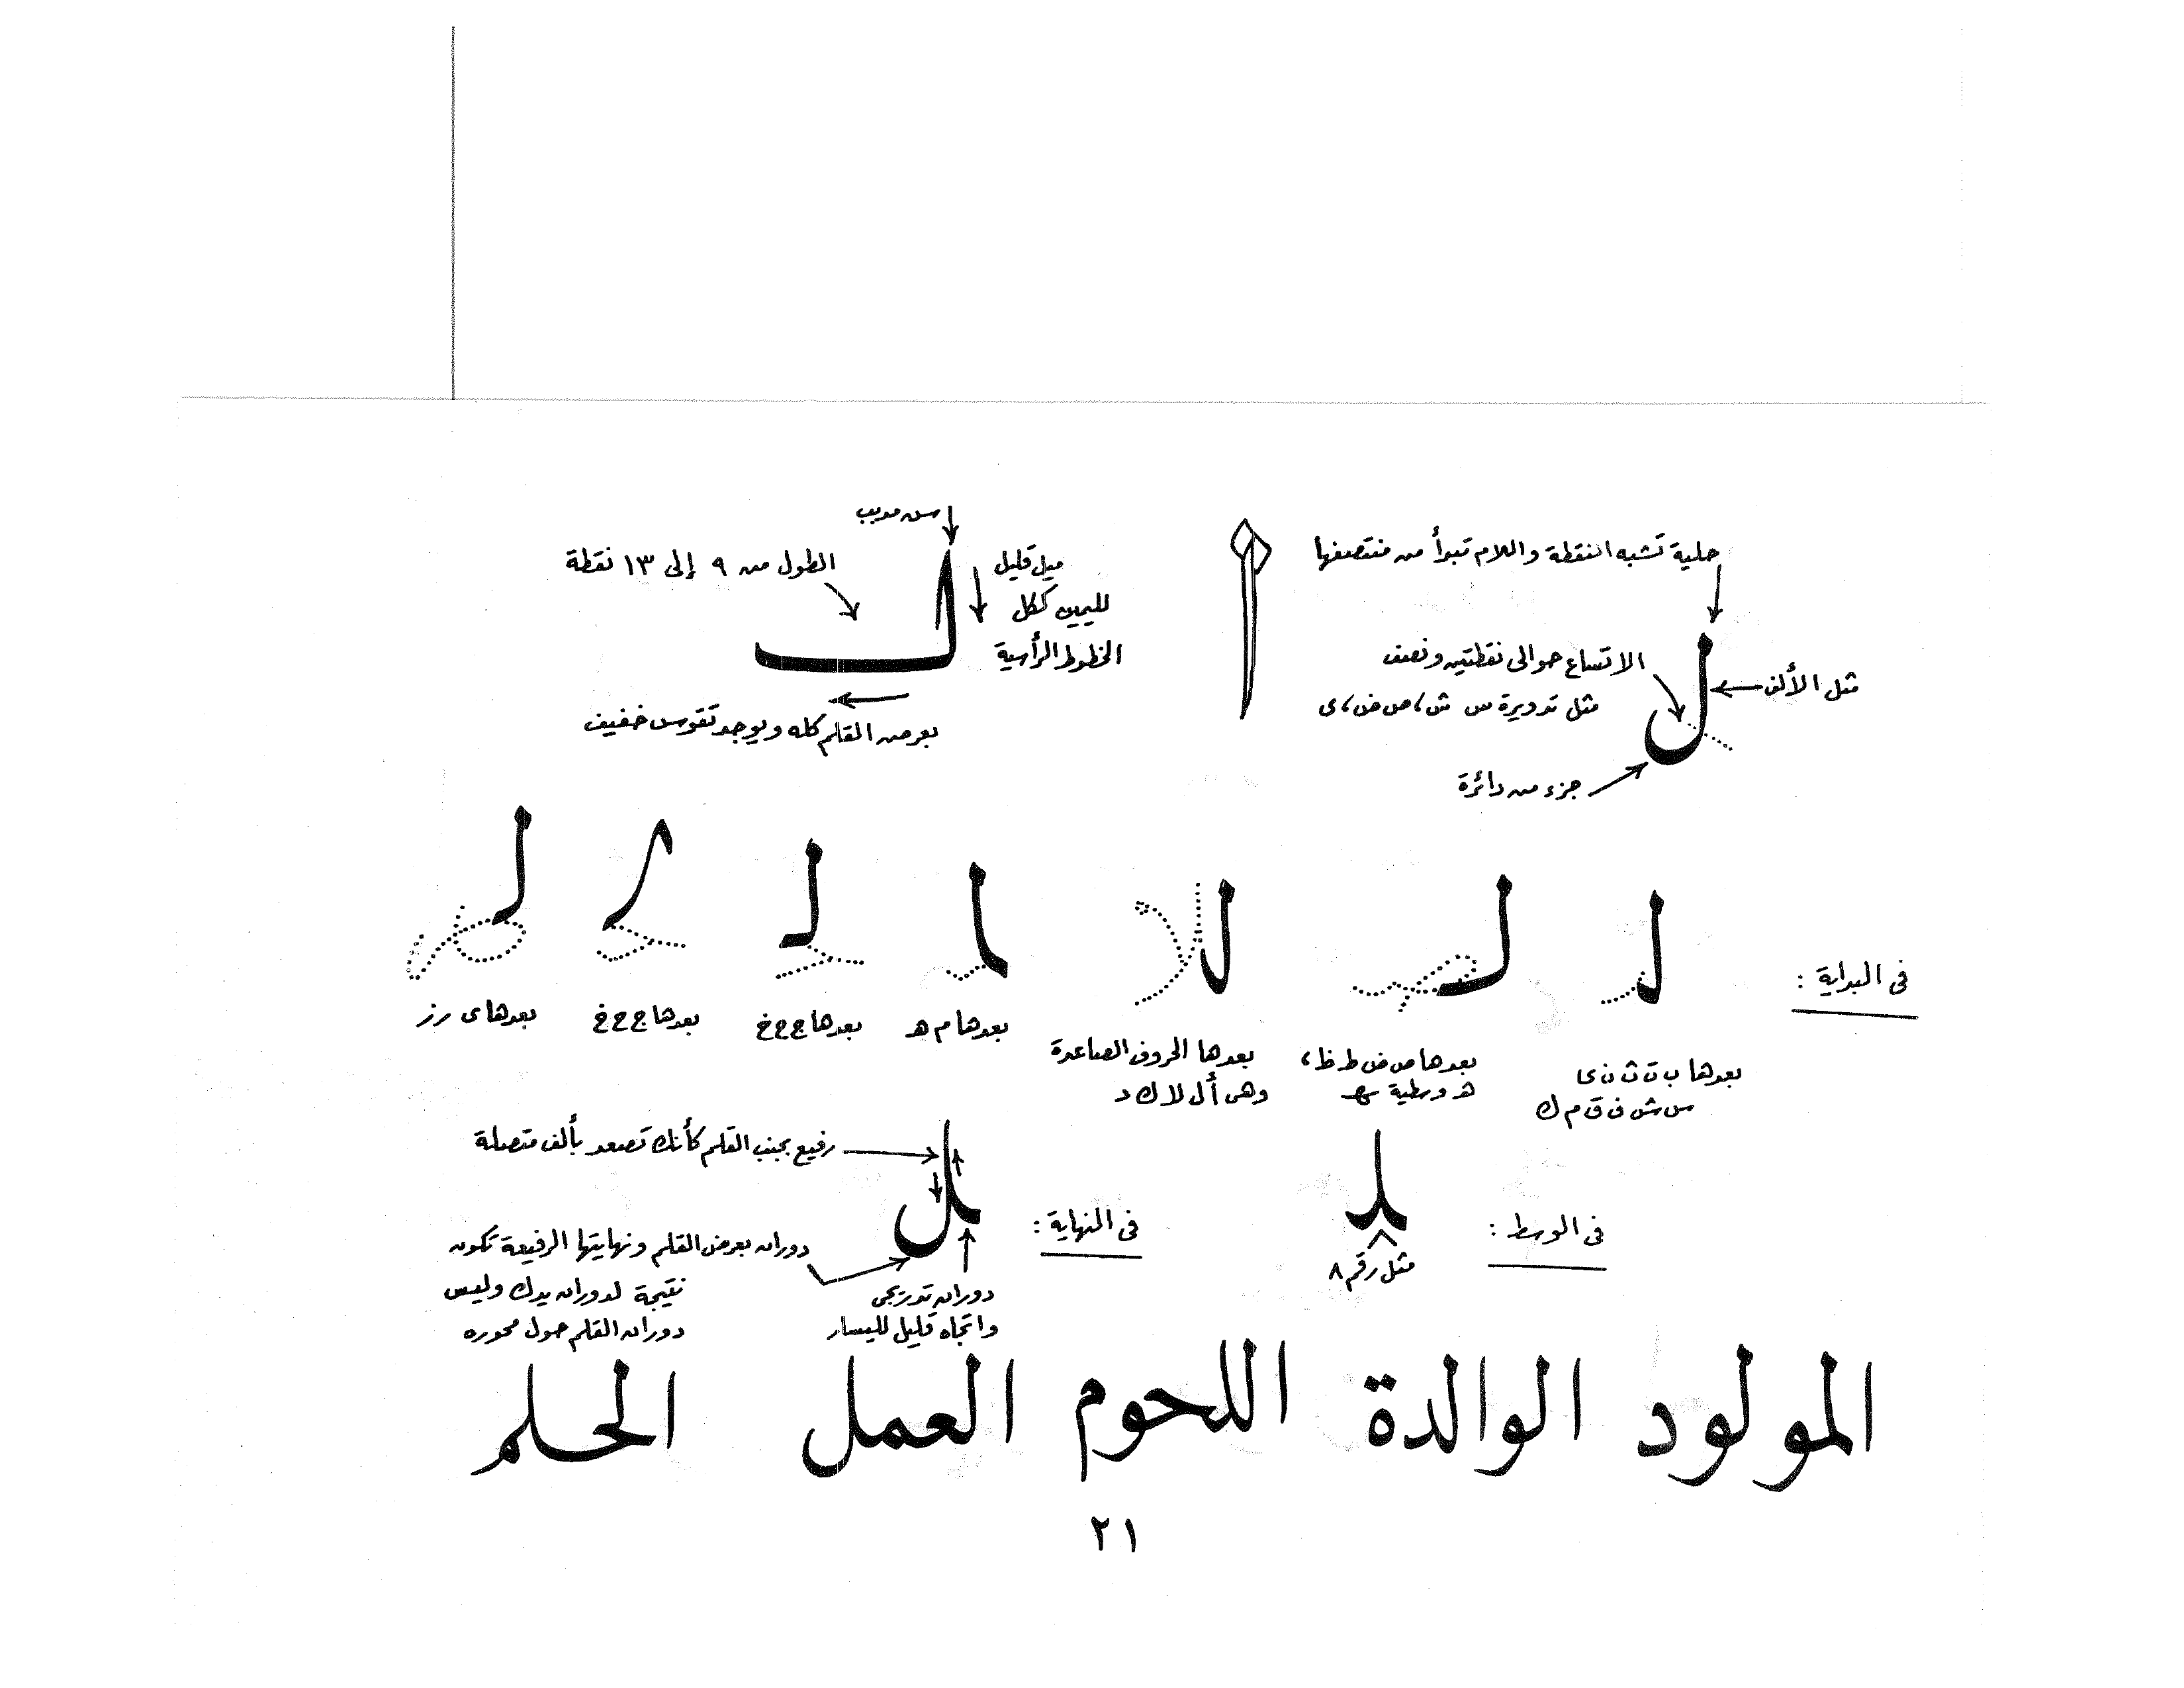 حلية تشبه النقطة واللام تبدأ من منتصفها
ل
مثل الألف
الاتساع حوالى نقطتين ونصف
مثل تدويرة س ش ، ص ض ، ى
جزء من دائرة
سن مدبب
ميل قليل
لليمين ككل
الخطوط الرأسية
الطول من ٩ إلى ١٣ نقطة
بعرض القلم كله ويوجد تقوس خفيف
فى البداية :
بعدها ب ت ث ن ى
س ش ف ق م ك
بعدها ص ض ط ظ ،
هـ وسطية
بعدها الحروف الصاعدة
وهى أ ل لا ك د
بعدها م هـ
بعدها ج ح خ
بعدها ج ح خ
بعدها ى ر ز
فى الوسط :
مثل رقم ٨
فى النهاية :
رفيع بجنب القلم كأنك تصعد بألف متصلة
دوران بعرض القلم ونهايتها الرفيعة تكون
نتيجة لدوران يدك وليس
دوران القلم حول محوره
دوران تدريجى
واتجاه قليل لليسار
المولود الوالدة اللحوم العمل الحلم
٢١